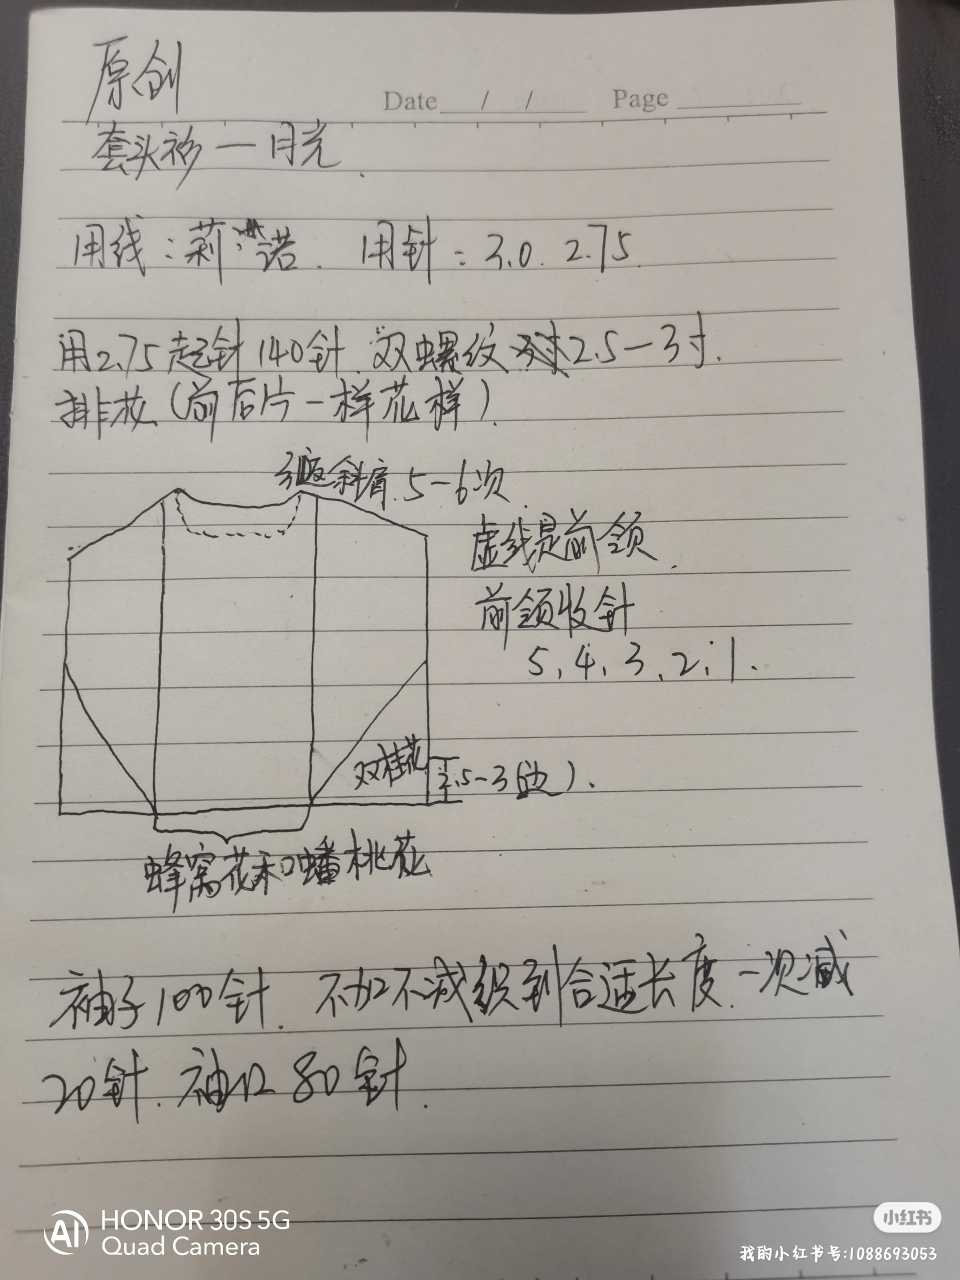 原创
Date / / Page
套头衫一月光.
用线:莉诺. 用针:3.0. 2.75.
用2.75起针140针. 双螺纹2.5-3寸.
排花(前后片一样花样).
引返斜肩.5-6次
虚线是前领.
前领收针
5.4.3.2.1.
双桂花
2.5-3(边).
蜂窝花和蟠桃花
袖子100针. 不加不减织到合适长度.一次减
20针.袖口80针.
HONOR 30S 5G
Quad Camera
小红书
我的小红书号:1088693053